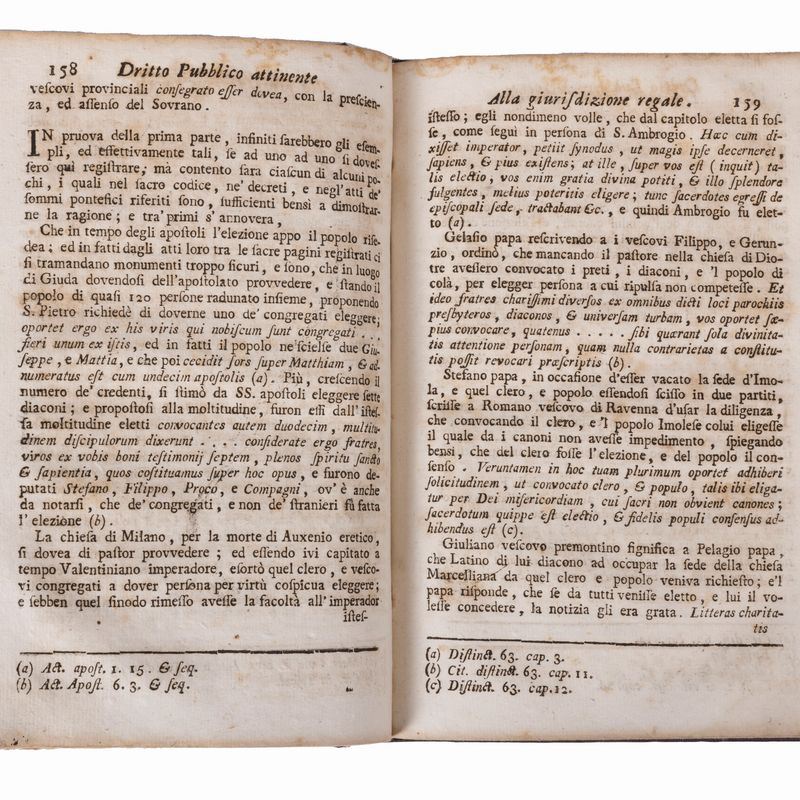 158 Dritto Pubblico attinente
veſcovi provinciali conſegrato eſſer dovea, con la preſcien-
za, ed aſſenſo del Sovrano.
IN pruova della prima parte, infiniti ſarebbero gli eſem-
pli, ed effettivamente tali, ſe ad uno ad uno ſi doveſ-
ſero qui regiſtrare, mà contento ſara ciaſcun di alcuni po-
chi, i quali nel ſacro codice, ne' decreti, e negl' atti de'
ſommi pontefici riferiti ſono, ſufficienti bensì a dimoſtrar-
ne la ragione; e tra' primi s' annovera,
Che in tempo degli apoſtoli l'elezione appo il popolo riſe-
dea; ed in fatti dagli atti loro tra le ſacre pagini regiſtrati ci
ſi tramandano monumenti troppo ſicuri, e ſono, che in luogo
di Giuda dovendoſi dell'apoſtolato provvedere, e ſtando il
popolo di quaſi 120 perſone radunato inſieme, proponendo
S. Pietro richiedè di doverne uno de' congregati eleggere;
oportet ergo ex his viris qui nobiſcum ſunt congregati ...
fieri unum ex iſtis, ed in fatti il popolo ne'ſcielſe due Giu-
ſeppe, e Mattia, e che poi cecidit ſors ſuper Matthiam, & ad-
numeratus eſt cum undecim apoſtolis (a). Più, creſcendo il
numero de' credenti, ſi ſtimò da SS. apoſtoli eleggere ſette
diaconi; e propoſtoſi alla moltitudine, furon eſſi dall' iſteſ-
ſa moltitudine eletti convocantes autem duodecim, multitu-
dinem diſcipulorum dixerunt .... conſiderate ergo fratres,
viros ex vobis boni teſtimonij ſeptem, plenos ſpiritu ſancto
& ſapientia, quos coſtituamus ſuper hoc opus, e furono de-
putati Stefano, Filippo, Proco, e Compagni, ov' è anche
da notarſi, che de' congregati, e non de' ſtranieri fù fatta
l' elezione (b).
La chieſa di Milano, per la morte di Auxenio eretico,
ſi dovea di paſtor provvedere; ed eſſendo ivi capitato a
tempo Valentiniano imperadore, eſortò quel clero, e veſco-
vi congregati a dover perſona per virtù coſpicua eleggere;
e ſebben quel ſinodo rimeſſo aveſſe la facoltà all' imperador
iſteſ-
(a) Act. apoſt. 1. 15. & ſeq.
(b) Act. Apoſt. 6. 3. & ſeq.
Alla giuriſdizione regale. 159
iſteſſo; egli nondimeno volle, che dal capitolo eletta ſi foſ-
ſe, come ſeguì in perſona di S. Ambrogio. Hæc cum di-
xiſſet imperator, petiit ſynodus, ut magis ipſe decerneret,
ſapiens, & pius exiſtens; at ille, ſuper vos eſt (inquit) ta-
lis electio; vos enim gratia divina potiti, & illo ſplendore
fulgentes, melius poteritis eligere; tunc ſacerdotes egreſſi de
epiſcopali ſede, tractabant &c., e quindi Ambrogio fu elet-
to (a).
Gelaſio papa reſcrivendo a i veſcovi Filippo, e Gerun-
zio, ordinò, che mancando il paſtore nella chieſa di Dio-
tre aveſſero convocato i preti, i diaconi, e 'l popolo di
colà, per elegger perſona a cui ripulſa non competeſſe. Et
ideo fratres chariſſimi diverſos ex omnibus dicti loci parochiis
presbyteros, diaconos, & univerſam turbam, vos oportet ſæ-
pius convocare, quatenus ..... ſibi quærant ſola divinita-
tis attentione perſonam, quam nulla contrarietas a conſtitu-
tis poſſit revocari præſcriptis (b).
Stefano papa, in occaſione d'eſſer vacato la ſede d'Imo-
la, e quel clero, e popolo eſſendoſi ſciſſo in due partiti,
ſcriſſe a Romano veſcovo di Ravenna d'uſar la diligenza,
che convocando il clero, e 'l popolo Imoleſe colui eligeſſe
il quale da i canoni non aveſſe impedimento, ſpiegando
bensì, che del clero foſſe l'elezione, e del popolo il con-
ſenſo. Veruntamen in hoc tuam plurimum oportet adhiberi
ſolicitudinem, ut convocato clero, & populo, talis ibi eliga-
tur per Dei miſericordiam, cui ſacri non obvient canones;
ſacerdotum quippe eſt electio, & fidelis populi conſenſus ad-
hibendus eſt (c).
Giuliano veſcovo premontino ſignifica a Pelagio papa,
che Latino di lui diacono ad occupar la ſede della chieſa
Marcelliana da quel clero e popolo veniva richieſto; e'l
papa riſponde, che ſe da tutti veniſſe eletto, e lui il vo-
leſſe concedere, la notizia gli era grata. Litteras charita-
tis
(a) Diſtinct. 63. cap. 3.
(b) Cit. diſtinct. 63. cap. 11.
(c) Diſtinct. 63. cap. 12.